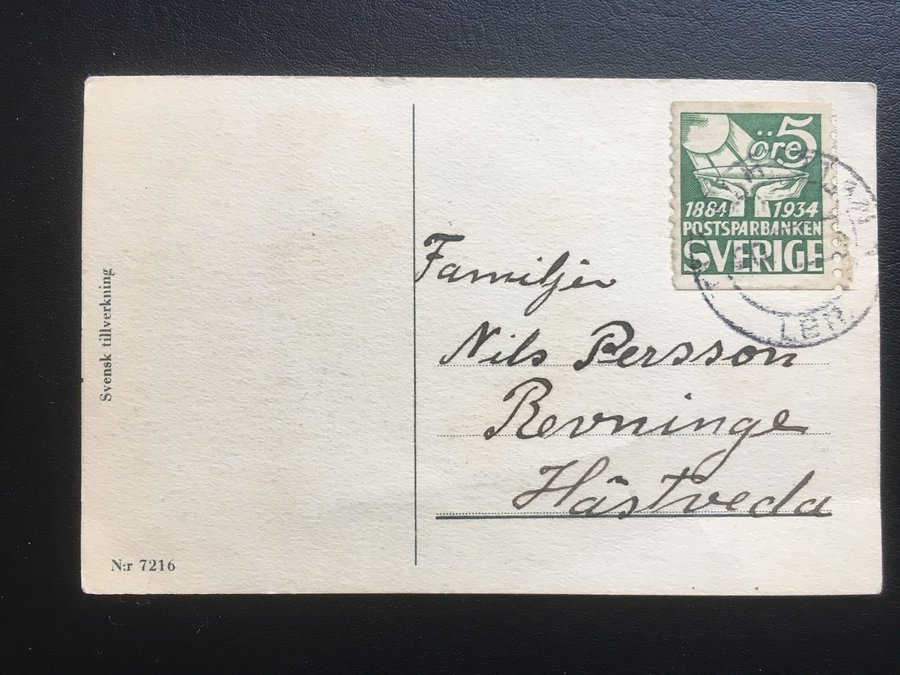 5
öre
1884 1934
POSTSPARBANKEN
SVERIGE
LBR
Familjen
Nils Persson
Revninge
Hästveda
Svensk tillverkning
N:r 7216